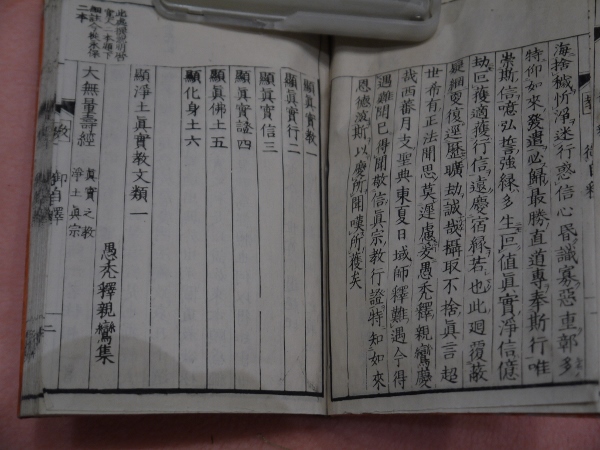 海捨穢忻淨迷行惑信心昏識寡惡重鄣多
特仰如來發遣必歸最勝直道專奉斯行唯
崇斯信噫弘誓強緣多生叵值眞實淨信億
劫叵獲適獲行信遠慶宿緣若也此廻覆蔽
疑網更復逕歷曠劫誠哉攝取不捨眞言超
世希有正法聞思莫遲慮爰愚禿釋親鸞慶
哉西蕃月支聖典東夏日域師釋難遇今得
遇難聞已得聞敬信眞宗教行證特知如來
恩德深斯以慶所聞嘆所獲矣
顯眞實教一
顯眞實行二
顯眞實信三
顯眞實證四
顯眞佛土五
顯化身土六
顯淨土眞實教文類一
愚禿釋親鸞集
大無量壽經
眞實之教
淨土眞宗
二本